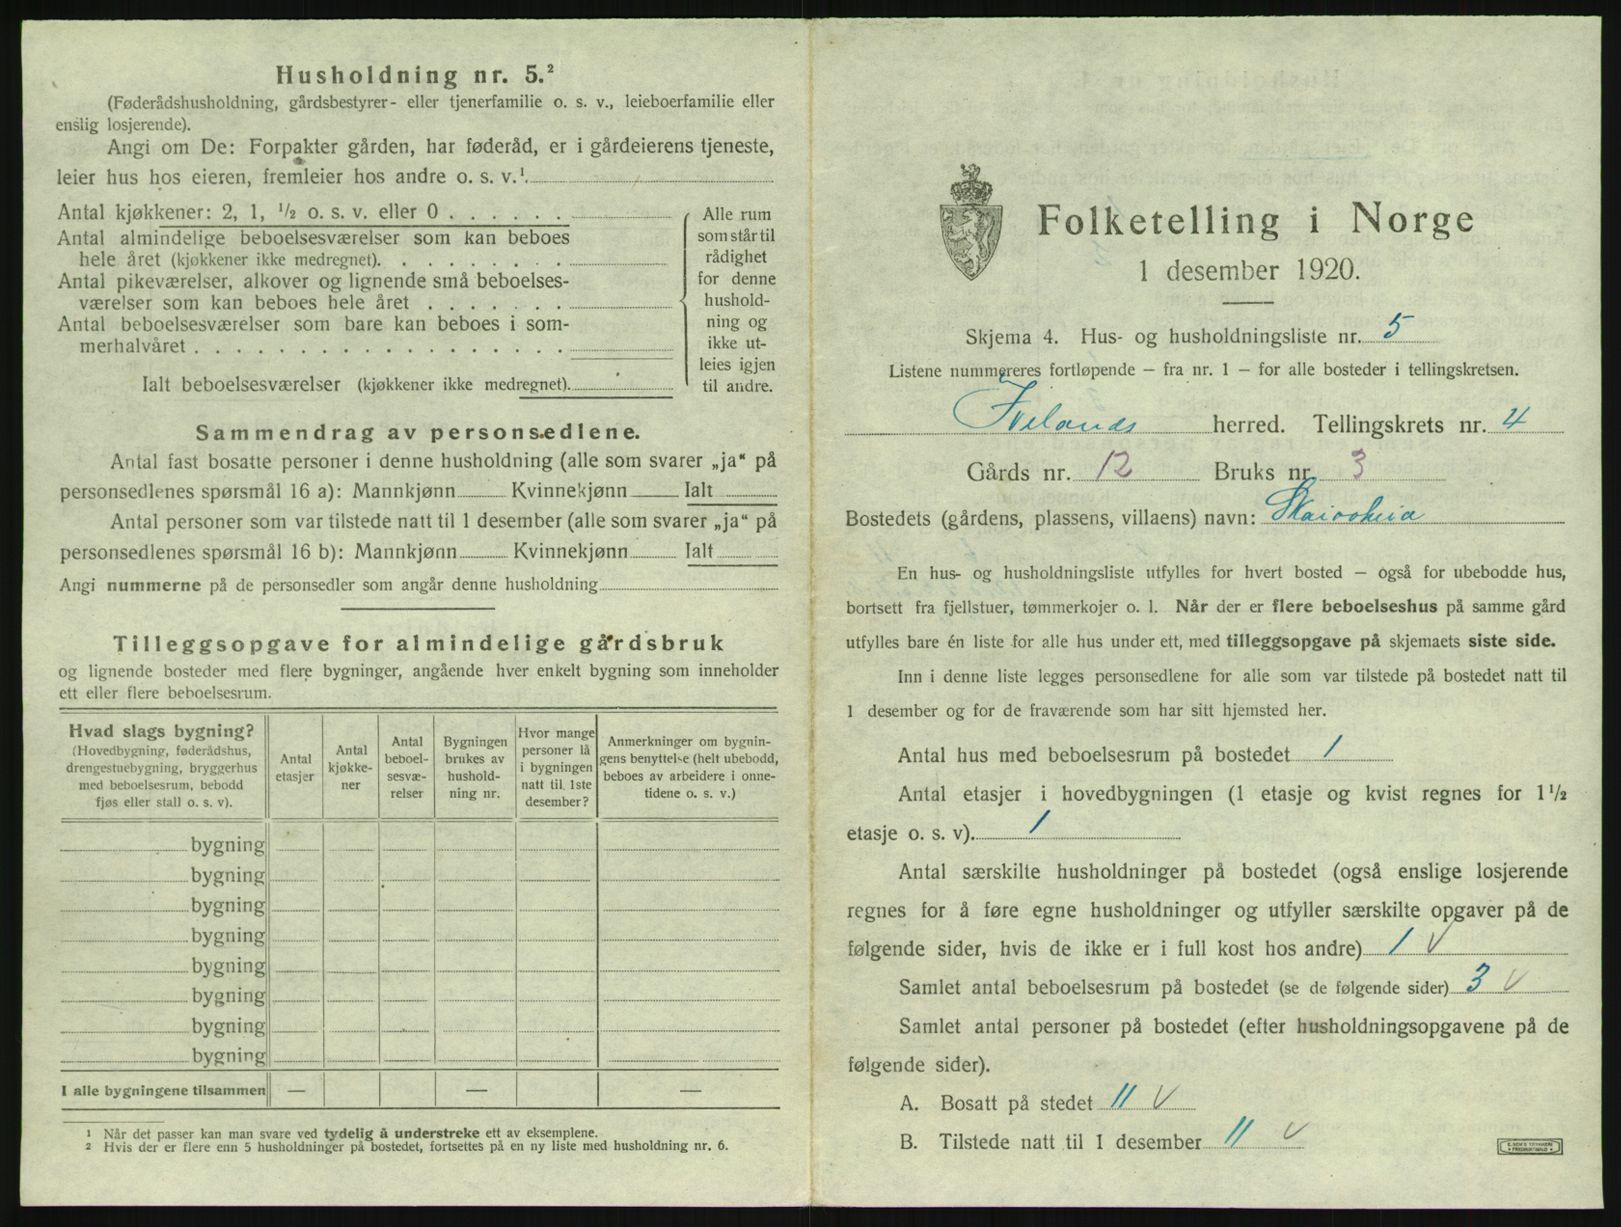 Husholdning nr. 5.²
(Føderådshusholdning, gårdsbestyrer- eller tjenerfamilie o. s. v., leieboerfamilie eller
enslig losjerende).
Angi om De: Forpakter gården, har føderåd, er i gårdeierens tjeneste,
leier hus hos eieren, fremleier hos andre o. s. v.¹
Antal kjøkkener: 2, 1, ½ o. s. v. eller 0 . . . . . .
Antal almindelige beboelsesværelser som kan beboes
hele året (kjøkkener ikke medregnet). . . . . . . . .
Antal pikeværelser, alkover og lignende små beboelses-
værelser som kan beboes hele året . . . . . . .
Antal beboelsesværelser som bare kan beboes i som-
merhalvåret . . . . . . . . . . . . . . . . . .
Ialt beboelsesværelser (kjøkkener ikke medregnet).
Alle rum
som står til
rådighet
for denne
hushold-
ning og
ikke ut-
leies igjen
til andre.
Sammendrag av personsedlene.
Antal fast bosatte personer i denne husholdning (alle som svarer „ja“ på
personsedlenes spørsmål 16 a): Mannkjønn Kvinnekjønn Ialt
Antal personer som var tilstede natt til 1 desember (alle som svarer „ja“ på
personsedlenes spørsmål 16 b): Mannkjønn Kvinnekjønn Ialt
Angi nummerne på de personsedler som angår denne husholdning
Tilleggsopgave for almindelige gårdsbruk
og lignende bosteder med flere bygninger, angående hver enkelt bygning som inneholder
ett eller flere beboelsesrum.
Hvad slags bygning?
(Hovedbygning, føderådshus,
drengestuebygning, bryggerhus
med beboelsesrum, bebodd
fjøs eller stall o. s. v).
Antal
etasjer
Antal
kjøkke-
ner
Antal
beboel-
sesvæ-
relser
Bygningen
brukes av
hushold-
ning nr.
Hvor mange
personer lå
i bygningen
natt til 1ste
desember?
Anmerkninger om bygnin-
gens benyttelse (helt ubebodd,
beboes av arbeidere i onne-
tidene o. s. v.)
bygning
bygning
bygning
bygning
bygning
bygning
bygning
bygning
I alle bygningene tilsammen — — —
¹ Når det passer kan man svare ved tydelig å understreke ett av eksemplene.
² Hvis der er flere enn 5 husholdninger på bostedet, fortsettes på en ny liste med husholdning nr. 6.
Folketelling i Norge
1 desember 1920.
Skjema 4. Hus- og husholdningsliste nr. 5
Listene nummereres fortløpende — fra nr. 1 — for alle bosteder i tellingskretsen.
Ivelands herred. Tellingskrets nr. 4
Gårds nr. 12 Bruks nr. 3
Bostedets (gårdens, plassens, villaens) navn:
En hus- og husholdningsliste utfylles for hvert bosted — også for ubebodde hus,
bortsett fra fjellstuer, tømmerkojer o. l. Når der er flere beboelseshus på samme gård
utfylles bare én liste for alle hus under ett, med tilleggsopgave på skjemaets siste side.
Inn i denne liste legges personsedlene for alle som var tilstede på bostedet natt til
1 desember og for de fraværende som har sitt hjemsted her.
Antal hus med beboelsesrum på bostedet 1
Antal etasjer i hovedbygningen (1 etasje og kvist regnes for 1½
etasje o. s. v). 1
Antal særskilte husholdninger på bostedet (også enslige losjerende
regnes for å føre egne husholdninger og utfyller særskilte opgaver på de
følgende sider, hvis de ikke er i full kost hos andre) 1 v
Samlet antal beboelsesrum på bostedet (se de følgende sider) 3 v
Samlet antal personer på bostedet (efter husholdningsopgavene på de
følgende sider).
A. Bosatt på stedet 11 v
B. Tilstede natt til 1 desember 11 v